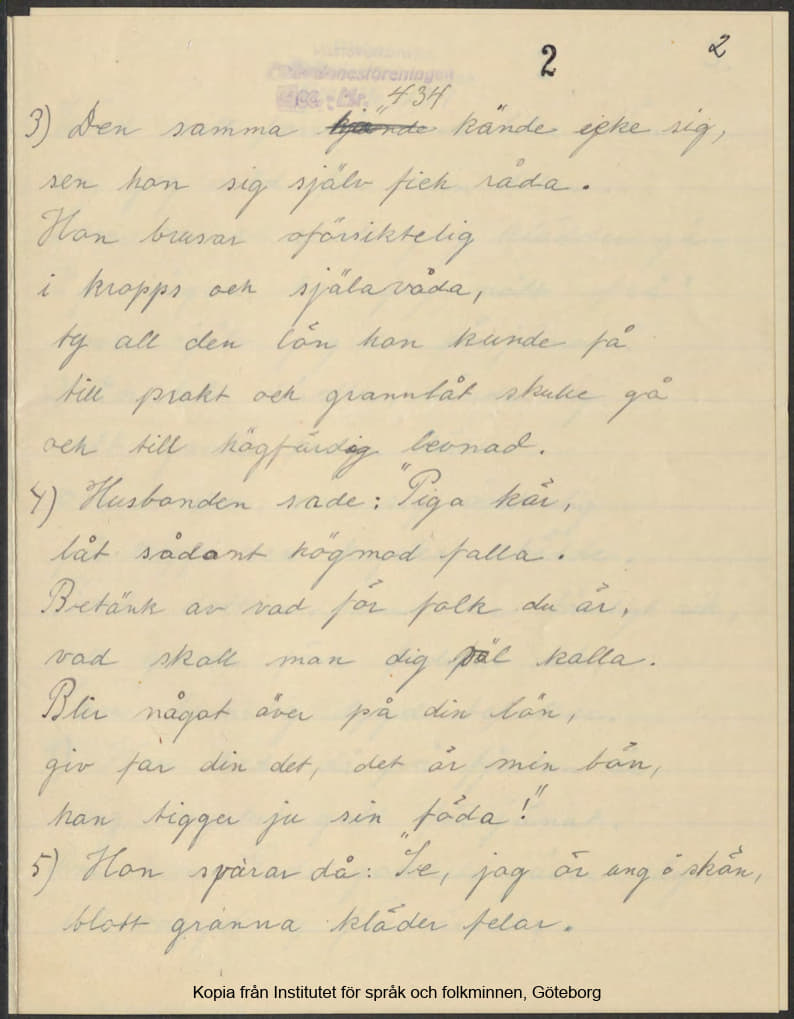 2 2
434
3) Den samma kände icke sig,
sen hon sig själv fick råda.
Hon brusar oförsiktelig
i kropps och själavåda,
ty all den lön hon kunde få
till prakt och grannlåt skulle gå
och till högfärdig levnad.
4) Husbonden sade: "Piga kär,
låt sådant högmod falla.
Betänk av vad för folk du är,
vad skall man dig väl kalla.
Blir något över på din lön,
giv far din det, det är min bön,
han tigger ju sin föda!"
5) Hon svarar då: "Se, jag är ung o skön,
blott granna kläder felar.
Kopia från Institutet för språk och folkminnen, Göteborg